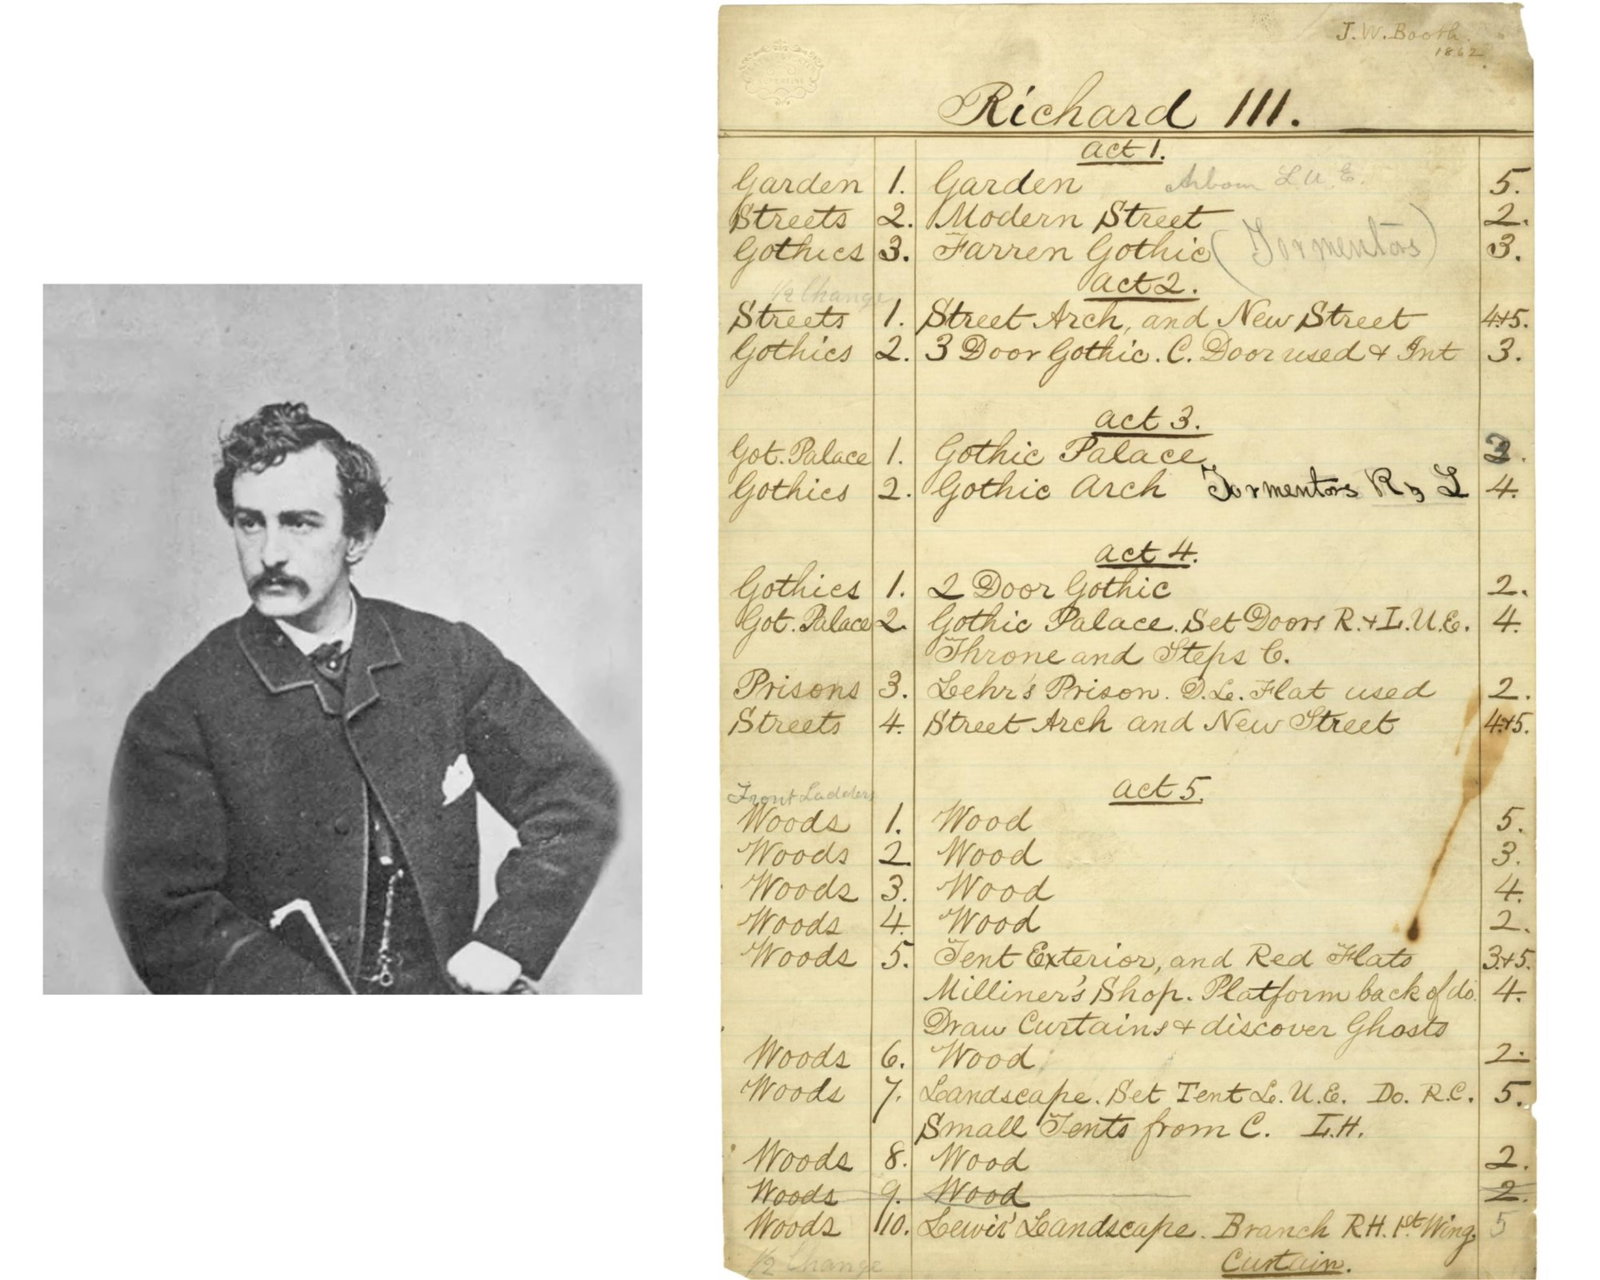 J.W. Booth.
1862
Richard III.
act 1.
Garden 1. Garden Arbour L.U.E. 5.
Streets 2. Modern Street 2.
Gothics 3. Farren Gothic (Tormentors) 3.
act 2.
1/2 Change
Streets 1. Street Arch, and New Street 4+5.
Gothics 2. 3 Door Gothic. C. Door used & Int 3.
act 3.
Got. Palace 1. Gothic Palace 3.
Gothics 2. Gothic Arch Tormentors R & L 4.
act 4.
Gothics 1. 2 Door Gothic 2.
Got. Palace 2. Gothic Palace. Set Doors R. & L.U.E. 4.
Throne and Steps C.
Prisons 3. Lehr's Prison. D.L. Flat used 2.
Streets 4. Street Arch and New Street 4+5.
act 5.
Front Ladders
Woods 1. Wood 5.
Woods 2 Wood 3.
Woods 3. Wood 4.
Woods 4. Wood 2.
Woods 5. Tent Exterior, and Red Flats 3+5.
Milliner's Shop. Platform back of do. 4.
Draw Curtains & discover Ghosts
Woods 6. Wood 2.
Woods 7. Landscape. Set Tent L.U.E. Do. R.C. 5.
Small Tents from C. L.H.
Woods 8. Wood 2.
Woods 9. Wood 2.
Woods 10. Lewis' Landscape. Branch R.H. 1st Wing 5
1/2 Change Curtain.